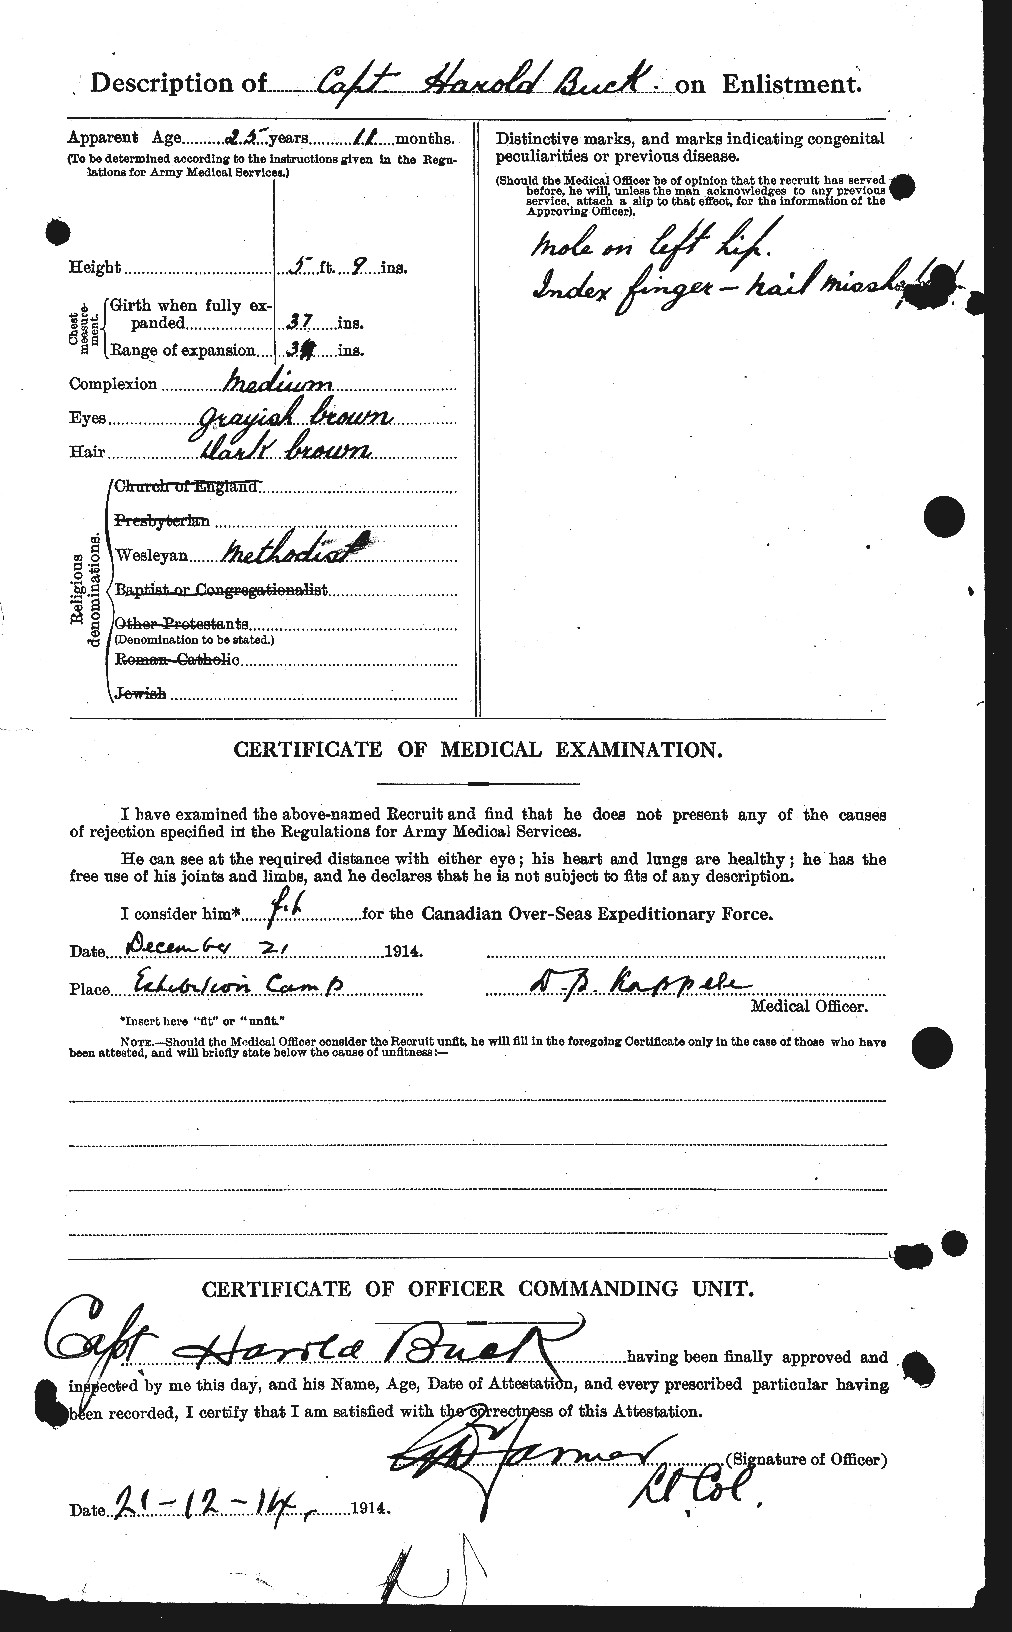 Description of Capt Harold Buck. on Enlistment.
Apparent Age 25 years 11 months.
(To be determined according to the instructions given in the Regu-
lations for Army Medical Services.)
Height 5 ft. 9 ins.
Chest measure-ment.
Girth when fully ex-
panded 37 ins.
Range of expansion ins.
Complexion Medium
Eyes grayish brown
Hair Dark brown
Religious denominations.
Church of England
Presbyterian
Wesleyan Methodist
Baptist or Congregationalist
Other Protestants
(Denomination to be stated.)
Roman Catholic
Jewish
Distinctive marks, and marks indicating congenital
peculiarities or previous disease.
(Should the Medical Officer be of opinion that the recruit has served
before, he will, unless the man acknowledges to any previous
service, attach a slip to that effect, for the information of the
Approving Officer).
Mole on left hip.
Index finger – nail
CERTIFICATE OF MEDICAL EXAMINATION.
I have examined the above-named Recruit and find that he does not present any of the causes
of rejection specified in the Regulations for Army Medical Services.
He can see at the required distance with either eye; his heart and lungs are healthy; he has the
free use of his joints and limbs, and he declares that he is not subject to fits of any description.
I consider him* fit for the Canadian Over-Seas Expeditionary Force.
Date December 21 1914.
Place Exhibition Camp D.P. Kappele
Medical Officer.
*Insert here "fit" or "unfit."
NOTE.—Should the Medical Officer consider the Recruit unfit, he will fill in the foregoing Certificate only in the case of those who have
been attested, and will briefly state below the cause of unfitness:—
CERTIFICATE OF OFFICER COMMANDING UNIT.
Capt Harold Buck having been finally approved and
inspected by me this day, and his Name, Age, Date of Attestation, and every prescribed particular having
been recorded, I certify that I am satisfied with the correctness of this Attestation.
Farmer (Signature of Officer)
Lt Col.
Date 21-12-14, 1914.